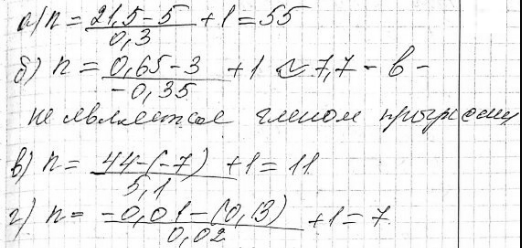 а) n = (21,5 - 5)/0,3 + 1 = 55
б) n = (0,65 - 3)/(-0,35) + 1 ≈ 7,7 - b -
не является членом прогрессии
в) n = (44 - (-7))/5,1 + 1 = 11
г) n = (-0,01 - (0,13))/0,02 + 1 = 7